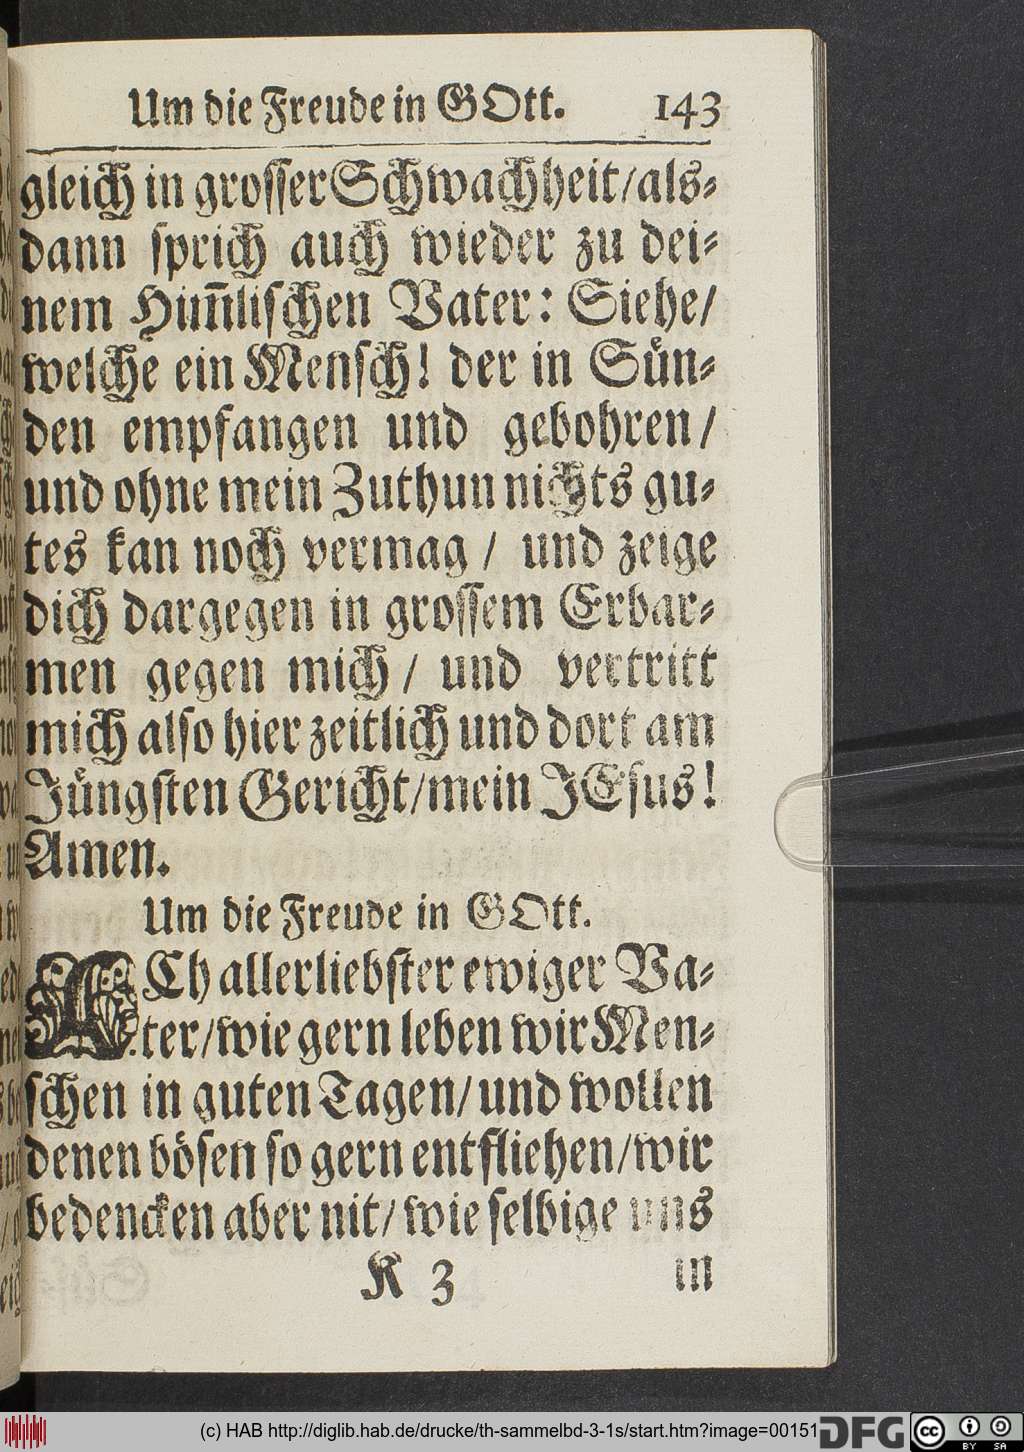 Um die Freude in GOtt. 143
gleich in grosser Schwachheit/als-
dann sprich auch wieder zu dei-
nem Him̅lischen Vater: Siehe/
welche ein Mensch! der in Sün-
den empfangen und gebohren/
und ohne mein Zuthun nichts gu-
tes kan noch vermag / und zeige
dich dargegen in grossem Erbar-
men gegen mich / und vertritt
mich also hier zeitlich und dort am
Jüngsten Gericht/mein JEsus!
Amen.
Um die Freude in GOtt.
ACh allerliebster ewiger Va-
ter/wie gern leben wir Men-
schen in guten Tagen/und wollen
denen bösen so gern entfliehen/wir
bedencken aber nit/wie selbige uns
K 3 in
(c) HAB http://diglib.hab.de/drucke/th-sammelbd-3-1s/start.htm?image=00151
DFG
cc BY SA